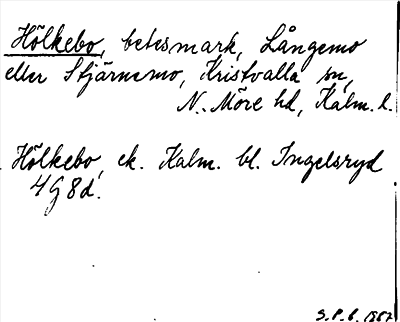 Hölkebo, betesmark, Långemo
eller Stjärnemo, Kristvalla sn,
N. Möre hd, Kalm. l.
Hölkebo, ek. Kalm. bl. Ingelsryd
4G8d.
S.P.B. 1967